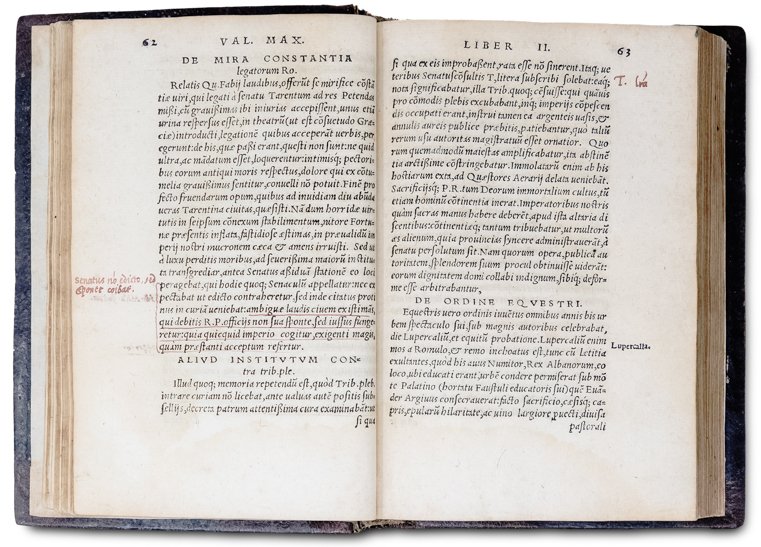 62 VAL. MAX.
DE MIRA CONSTANTIA
legatorum Ro.
Relatis Qu. Fabij laudibus, offerũt se mirifice cõstã
tiæ uiri, qui legati à senatu Tarentum ad res Petendas
missi, cũ grauissimas ibi iniurias accepissent, unus etiã
urina respersus esset, in theatrũ (ut est cõsuetudo Græ
cie) introducti, legationẽ quibus acceperãt uerbis, per
egerunt: de his, quæ passi erant, questi non sunt: ne quid
ultra, ac mãdatum esset, loquerentur: intimisq; pectori
bus eorum antiqui moris respectus, dolore qui ex cõtu
melia grauissimus sentitur, conuelli nõ potuit. Finẽ pro
fecto fruendarum opum, quibus ad inuidiam diu abũda
ueras Tarentina ciuitas, quæsisti. Nã dum horridæ uir
tutis in seipsum cõnexum stabilimentum, nitore Fortu
næ præsentis inflata, fastidiose æstimas, in præualidũ im
perij nostri mucronem cæca & amens irruisti. Sed ut
à luxu perditis moribus, ad seuerissima maiorũ instituta
transgrediar, antea Senatus aßiduã stationẽ eo loci
peragebat, qui hodie quoq; Senaculũ appellatur: nec ex
pectabat ut edicto contraheretur, sed inde citatus proti
nus in curiã ueniebat: ambiguæ laudis ciuem existimãs,
qui debitis R.P. officijs non sua sponte, sed iussus funge
retur: quia quicquid imperio cogitur, exigenti magis,
quàm præstanti acceptum refertur.
Senatus nõ edicto, sed
sponte coibat.
ALIVD INSTITVTVM CON-
tra trib. ple.
Illud quoq; memoria repetendũ est, quòd Trib. pleb.
intrare curiam nõ licebat, ante ualuas autẽ positis sub
sellijs, decreta patrum attentißima cura examinabãt: ut
si qua
LIBER II. 63
si qua ex eis improbaßent, rata esse nõ sinerent. Itaq; ue
teribus Senatuscõsultis T, litera subscribi solebat: eaq;
nota significabatur, illa Trib. quoq; cẽsuisse: qui quãuis
pro cõmodis plebis excubabant, inq; imperijs cõpescen
dis occupati erant, instrui tamen ea argenteis uasis, &
annulis aureis publice præbitis, patiebantur, quò taliũ
rerum usu autoritas magistratuũ esset ornatior. Quo
rum quemadmodũ maiestas amplificabatur, ita abstinẽ
tia arctißime cõstringebatur. Immolatarũ enim ab his
hostiarum exta, ad Quæstores Aerarij delata ueniebãt.
Sacrificijsq; P.R. tum Deorum immortalium cultus, tũ
etiam hominũ cõtinentia inerat. Imperatoribus nostris
quàm sacras manus habere deberẽt, apud ista altaria di
scentibus: cõtinentiæq; tantum tribuebatur, ut multorũ
æs alienum, quia prouincias syncere administrauerãt, à
senatu persolutum sit. Nam quorum opera, publicã au
toritatem, splendorem suum procul obtinuisse uiderãt:
eorum dignitatem domi collabi indignum, sibiq; defor-
me esse arbitrabantur.
DE ORDINE EQVESTRI.
Equestris uero ordinis iuuẽtus omnibus annis bis ur
bem spectaculo sui, sub magnis autoribus celebrabat,
die Lupercaliũ, et equitũ probatione. Lupercaliũ enim
mos a Romulo, & remo inchoatus est, tunc cũ Lætitia
exultantes, quòd his auus Numitor, Rex Albanorum, eo
loco, ubi educati erant, urbẽ condere permiserat sub mõ
te Palatino (hortatu Faustuli educatoris sui) quẽ Euã-
der Argiuus consecrauerat: facto sacrificio, cæsisq; ca-
pris, epularũ hilaritate, ac uino largiore puecti, diuisa
pastorali
Lupercalia.